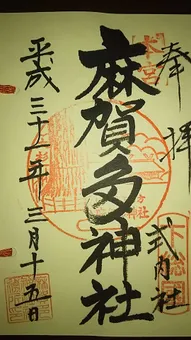 奉拝
下総国
式内社
本宮
麻賀多神社
平成三十一年三月十五日